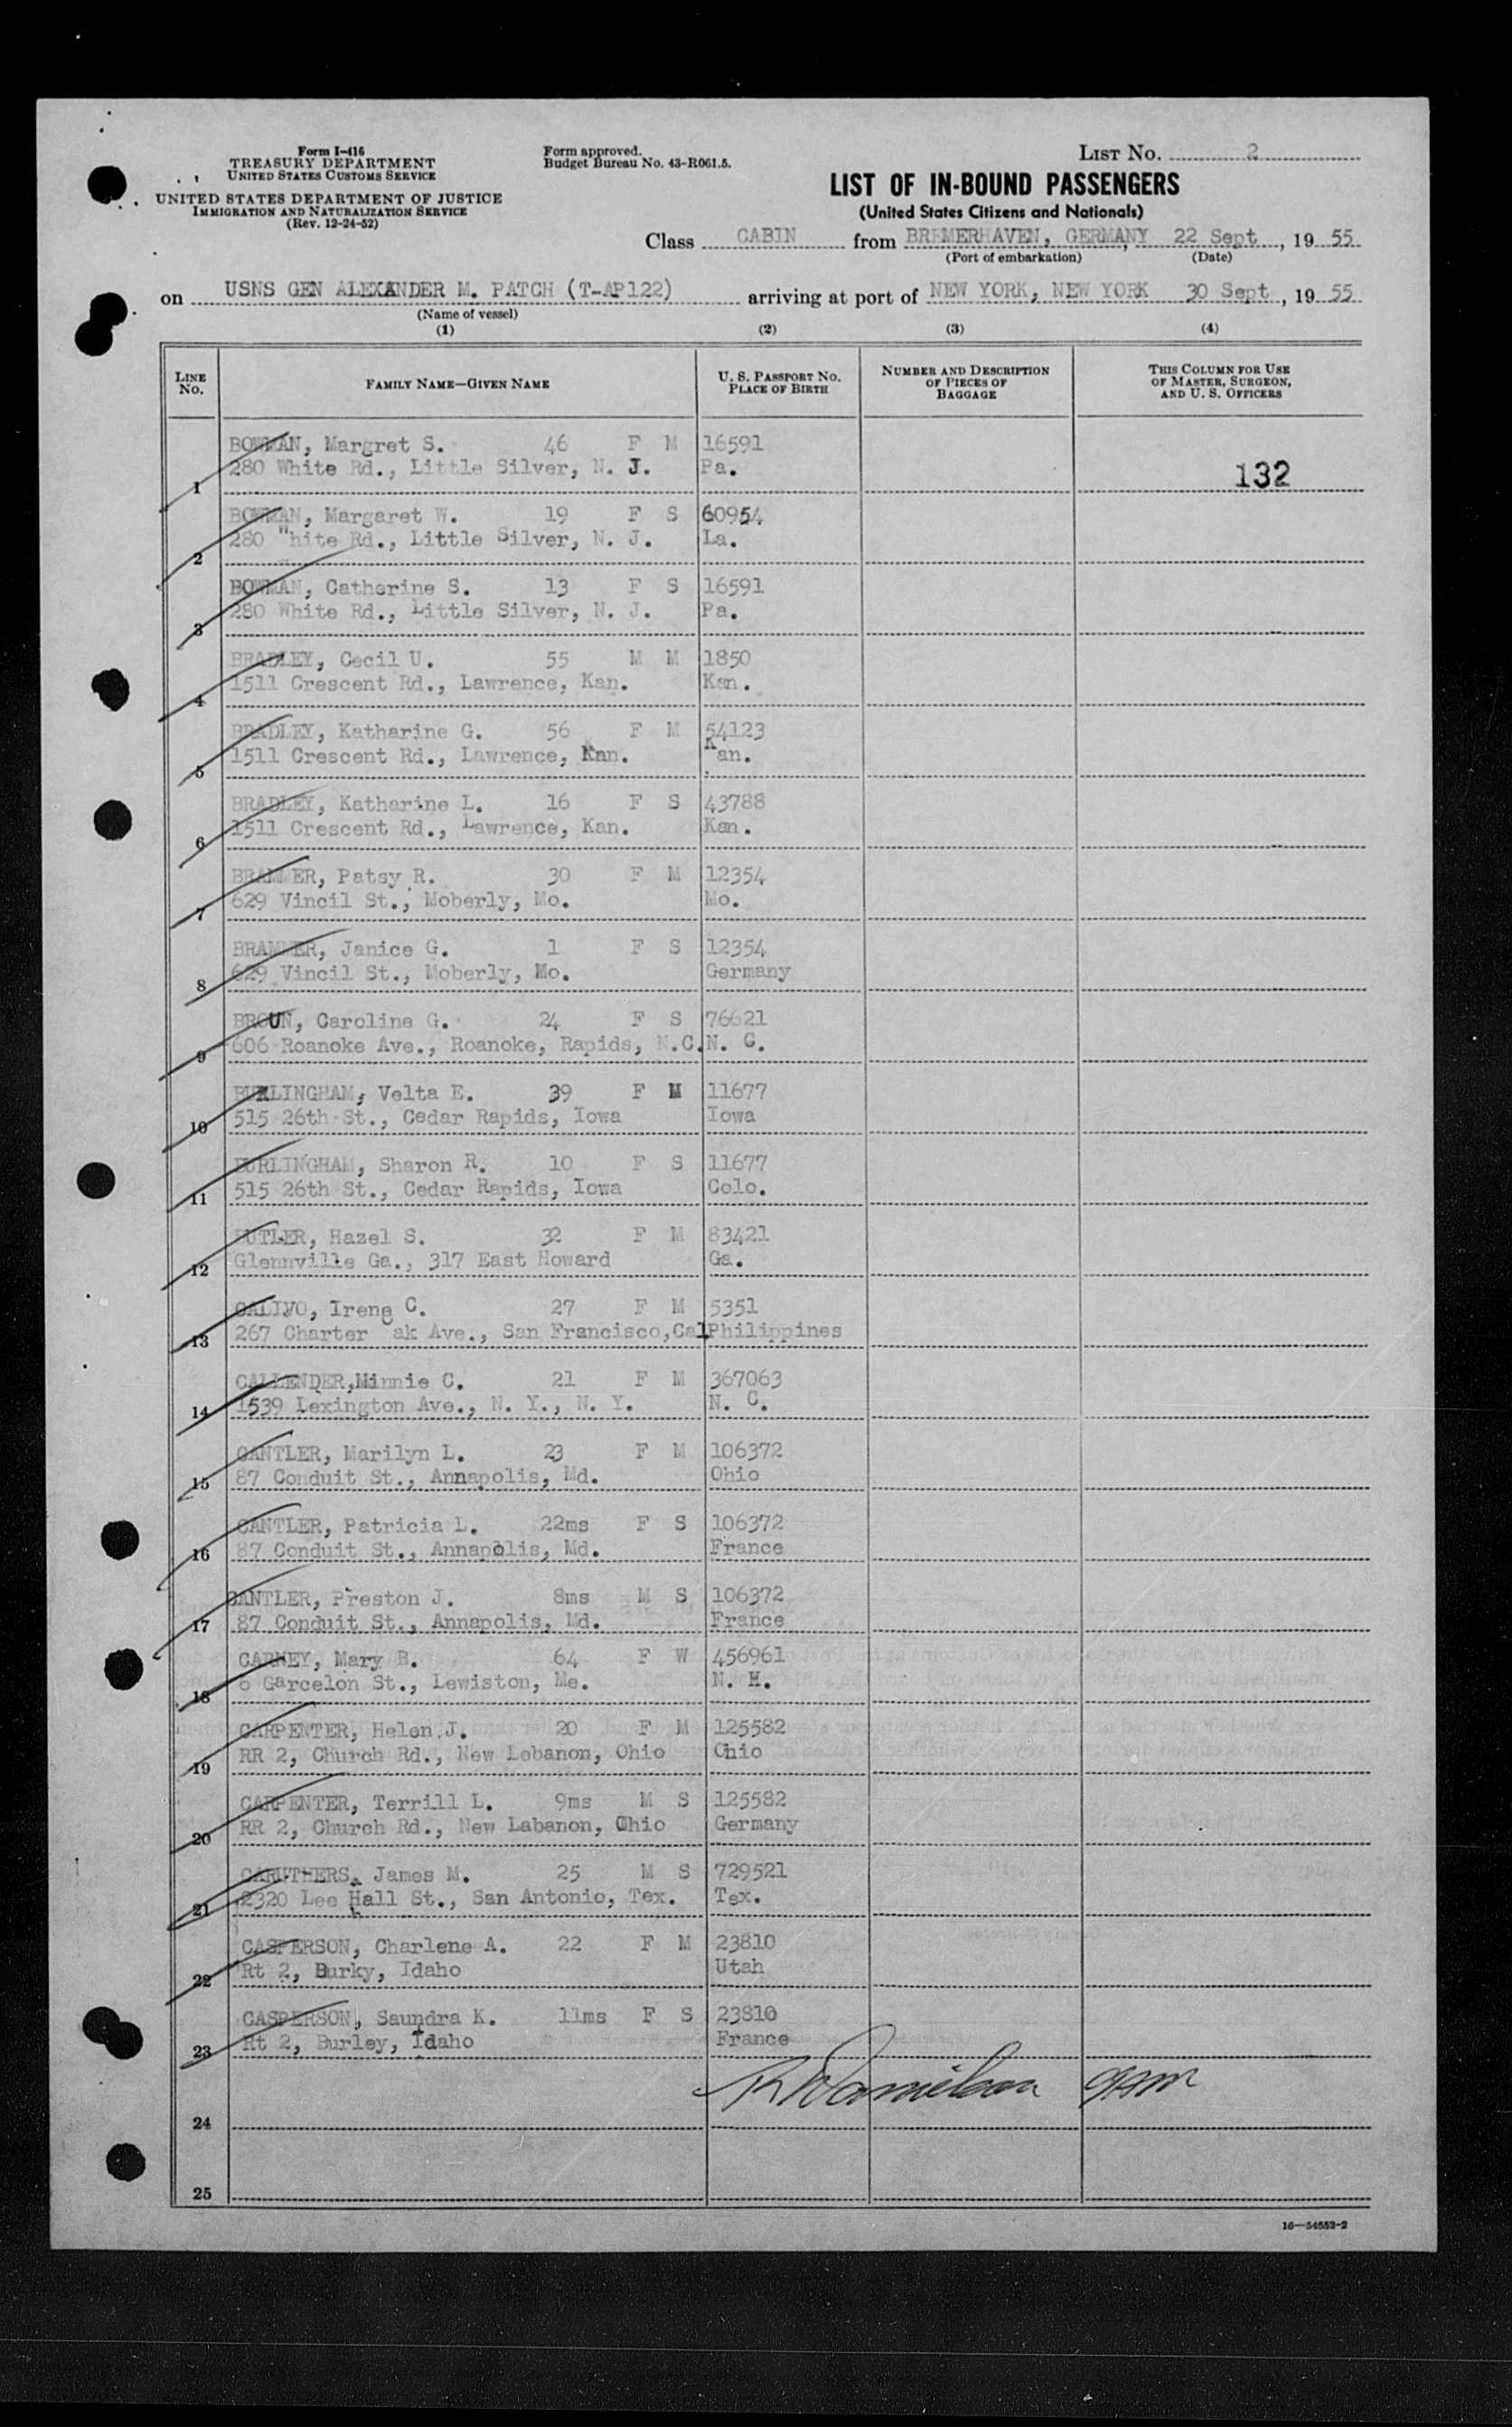 Form I-416
TREASURY DEPARTMENT
UNITED STATES CUSTOMS SERVICE
UNITED STATES DEPARTMENT OF JUSTICE
IMMIGRATION AND NATURALIZATION SERVICE
(Rev. 12-24-52)
Form approved.
Budget Bureau No. 43-R061.5.
LIST NO. 2
LIST OF IN-BOUND PASSENGERS
(United States Citizens and Nationals)
Class CABIN from BREMERHAVEN, GERMANY, 22 Sept, 19 55
(Port of embarkation) (Date)
on USNS GEN ALEXANDER M. PATCH (T-AP122) arriving at port of NEW YORK, NEW YORK 30 Sept, 19 55
(Name of vessel)
(1) (2) (3) (4)
LINE NO. FAMILY NAME—GIVEN NAME U. S. PASSPORT NO. PLACE OF BIRTH NUMBER AND DESCRIPTION OF PIECES OF BAGGAGE THIS COLUMN FOR USE OF MASTER, SURGEON, AND U. S. OFFICERS
BOWMAN, Margret S. 46 F M 16591
1 280 White Rd., Little Silver, N. J. Pa. 132
BOWMAN, Margaret W. 19 F S 60954
2 280 "hite Rd., Little Silver, N. J. La.
BOWMAN, Catherine S. 13 F S 16591
3 280 White Rd., Little Silver, N. J. Pa.
BRADLEY, Cecil U. 55 M M 1850
4 1511 Crescent Rd., Lawrence, Kan. Kan.
BRADLEY, Katharine G. 56 F M 54123
5 1511 Crescent Rd., Lawrence, Kan. Kan.
BRADLEY, Katharine L. 16 F S 43788
6 1511 Crescent Rd., Lawrence, Kan. Kan.
BRAMMER, Patsy R. 30 F M 12354
7 629 Vincil St., Moberly, Mo. Mo.
BRAMMER, Janice G. 1 F S 12354
8 629 Vincil St., Moberly, Mo. Germany
BROUN, Caroline G. 24 F S 76621
9 606 Roanoke Ave., Roanoke, Rapids, N.C. N. C.
BURLINGHAM, Velta E. 39 F M 11677
10 515 26th St., Cedar Rapids, Iowa Iowa
BURLINGHAM, Sharon R. 10 F S 11677
11 515 26th St., Cedar Rapids, Iowa Colo.
BUTLER, Hazel S. 32 F M 83421
12 Glennville Ga., 317 East Howard Ga.
CALIVO, Irene C. 27 F M 5351
13 267 Charter ak Ave., San Francisco,Cal Philippines
CALLENDER,Minnie C. 21 F M 367063
14 1539 Lexington Ave., N. Y., N. Y. N. C.
CANTLER, Marilyn L. 23 F M 106372
15 87 Conduit St., Annapolis, Md. Ohio
CANTLER, Patricia L. 22ms F S 106372
16 87 Conduit St., Annapolis, Md. France
CANTLER, Preston J. 8ms M S 106372
17 87 Conduit St., Annapolis, Md. France
CARNEY, Mary B. 64 F W 456961
18 6 Garcelon St., Lewiston, Me. N. H.
CARPENTER, Helen J. 20 F M 125582
19 RR 2, Church Rd., New Lebanon, Ohio Ohio
CARPENTER, Terrill L. 9ms M S 125582
20 RR 2, Church Rd., New Labanon, Ohio Germany
CARUTHERS, James M. 25 M S 729521
21 2320 Lee Hall St., San Antonio, Tex. Tex.
CASPERSON, Charlene A. 22 F M 23810
22 Rt 2, Burky, Idaho Utah
CASPERSON, Saundra K. 11ms F S 23810
23 Rt 2, Burley, Idaho France
24
25
16—54552-2